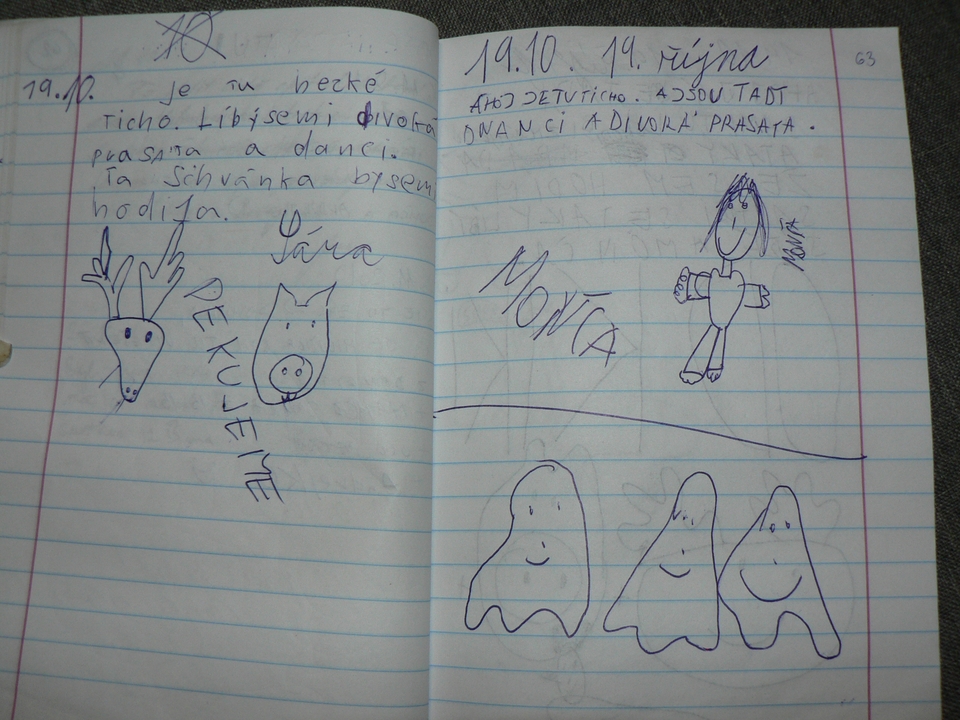 19.10. je tu hezké
ticho. Líbýsemi divoká
prasata a danci.
Ta Schránka bysem
hodifa.
Jára
DEKUJEME
19.10. 19. října
63
AHOJ JETUTICHO. AJSOU TADY
DNANCI A DIVORÁ PRASATA.
MONŤA
MONŤA